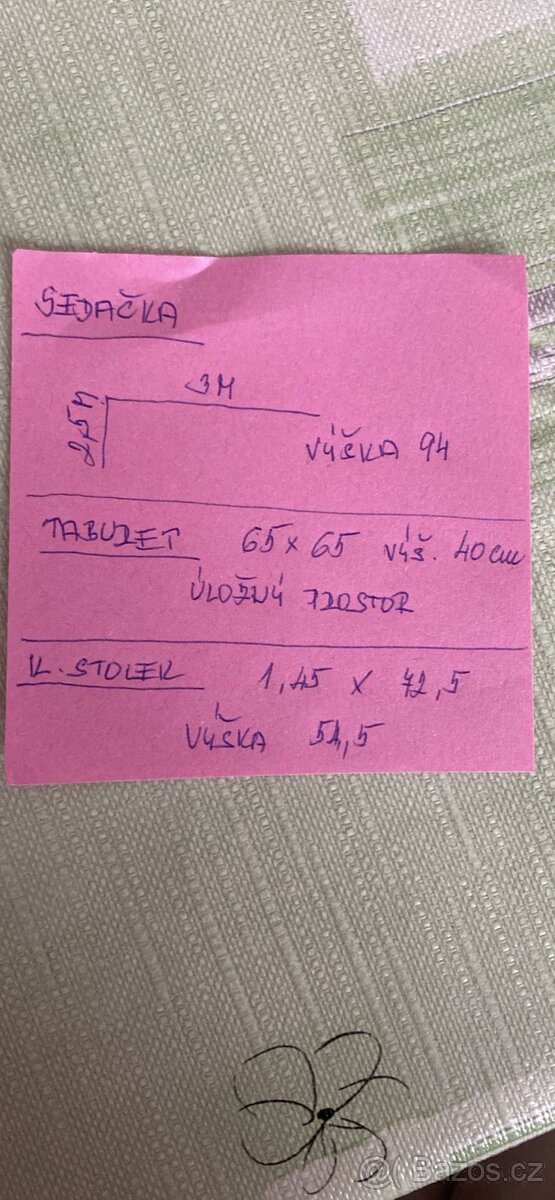 SEDAČKA
3M
2,5M
VÝŠKA 94
TABURET 65 x 65 VÝŠ. 40 cm
ÚLOŽNÝ PROSTOR
K. STOLEK 1,45 x 72,5
VÝŠKA 54,5
Bazos.cz